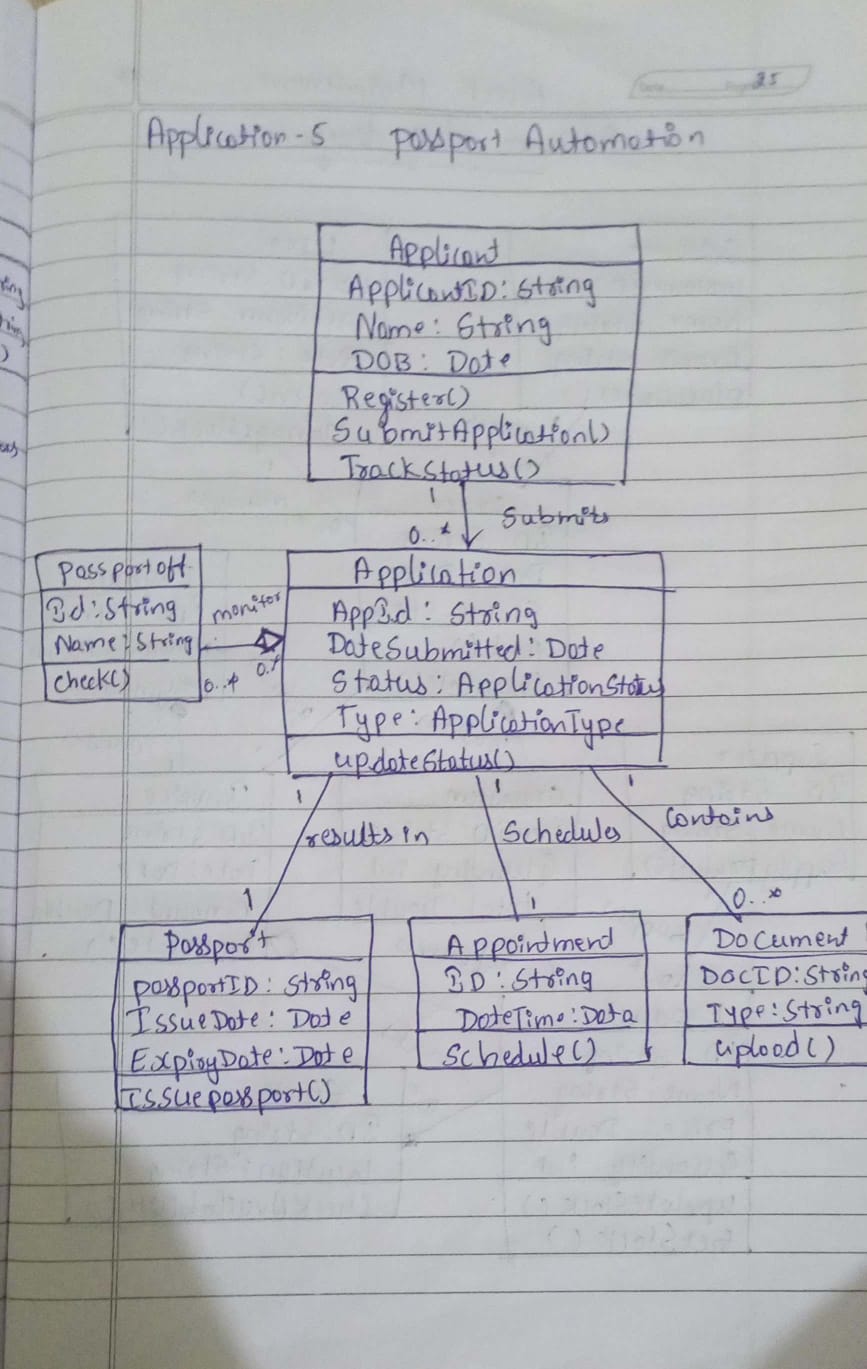 35
Application-5 Passport Automation
Applicant
ApplicantID: String
Name: String
DOB: Date
Register()
SubmitApplication()
TrackStatus()
1
Submits
0..*
Passport off
Id: String
Name: String
check()
monitor
0..*
0.*
Application
AppId: String
DateSubmitted: Date
Status: ApplicationStatus
Type: ApplicationType
updateStatus()
1
1
1
results in
Schedules
Contains
1
1
0..*
Passport
passportID: String
IssueDate: Date
ExpiryDate: Date
Issuepassport()
Appointmend
ID: String
DateTime: Data
Schedule()
Document
DOCID: String
Type: String
upload()